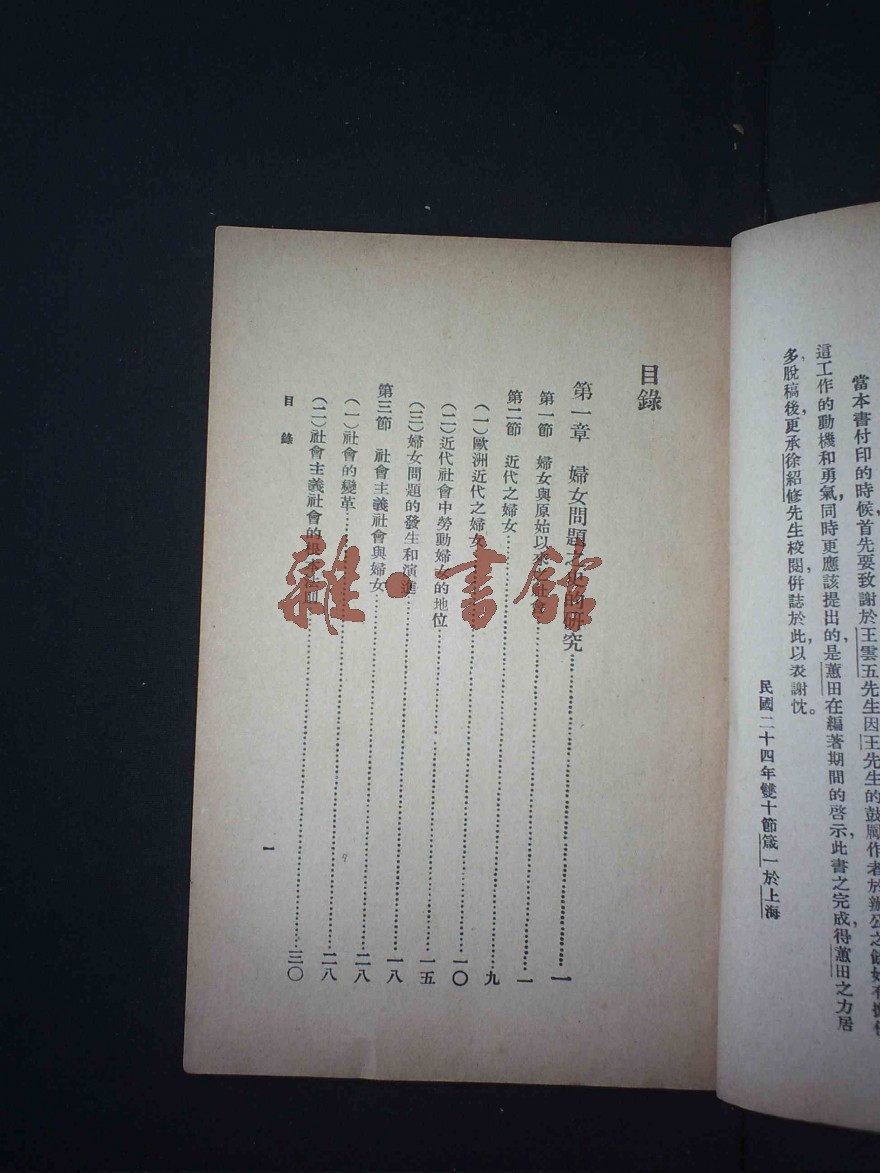 當本書付印的時候，首先要致謝於王雲五先生因王先生的鼓勵作者於辦公之餘始有
這工作的動機和勇氣，同時更應該提出的，是蕙田在編著期間的啓示，此書之完成得蕙田之力居
多，脫稿後，更承徐紹修先生校閱，併誌於此，以表謝忱。
民國二十四年雙十節箴一於上海
目錄
第一章　婦女問題之史的研究……一
第一節　婦女與原始以來之社會……一
第二節　近代之婦女……九
（一）歐洲近代之婦女……一〇
（二）近代社會中勞動婦女的地位……一五
（三）婦女問題的發生和演進……一八
第三節　社會主義社會與婦女……二八
（一）社會的變革……二八
（二）社會主義社會的根本法則……三〇
目錄
一
雜·書館